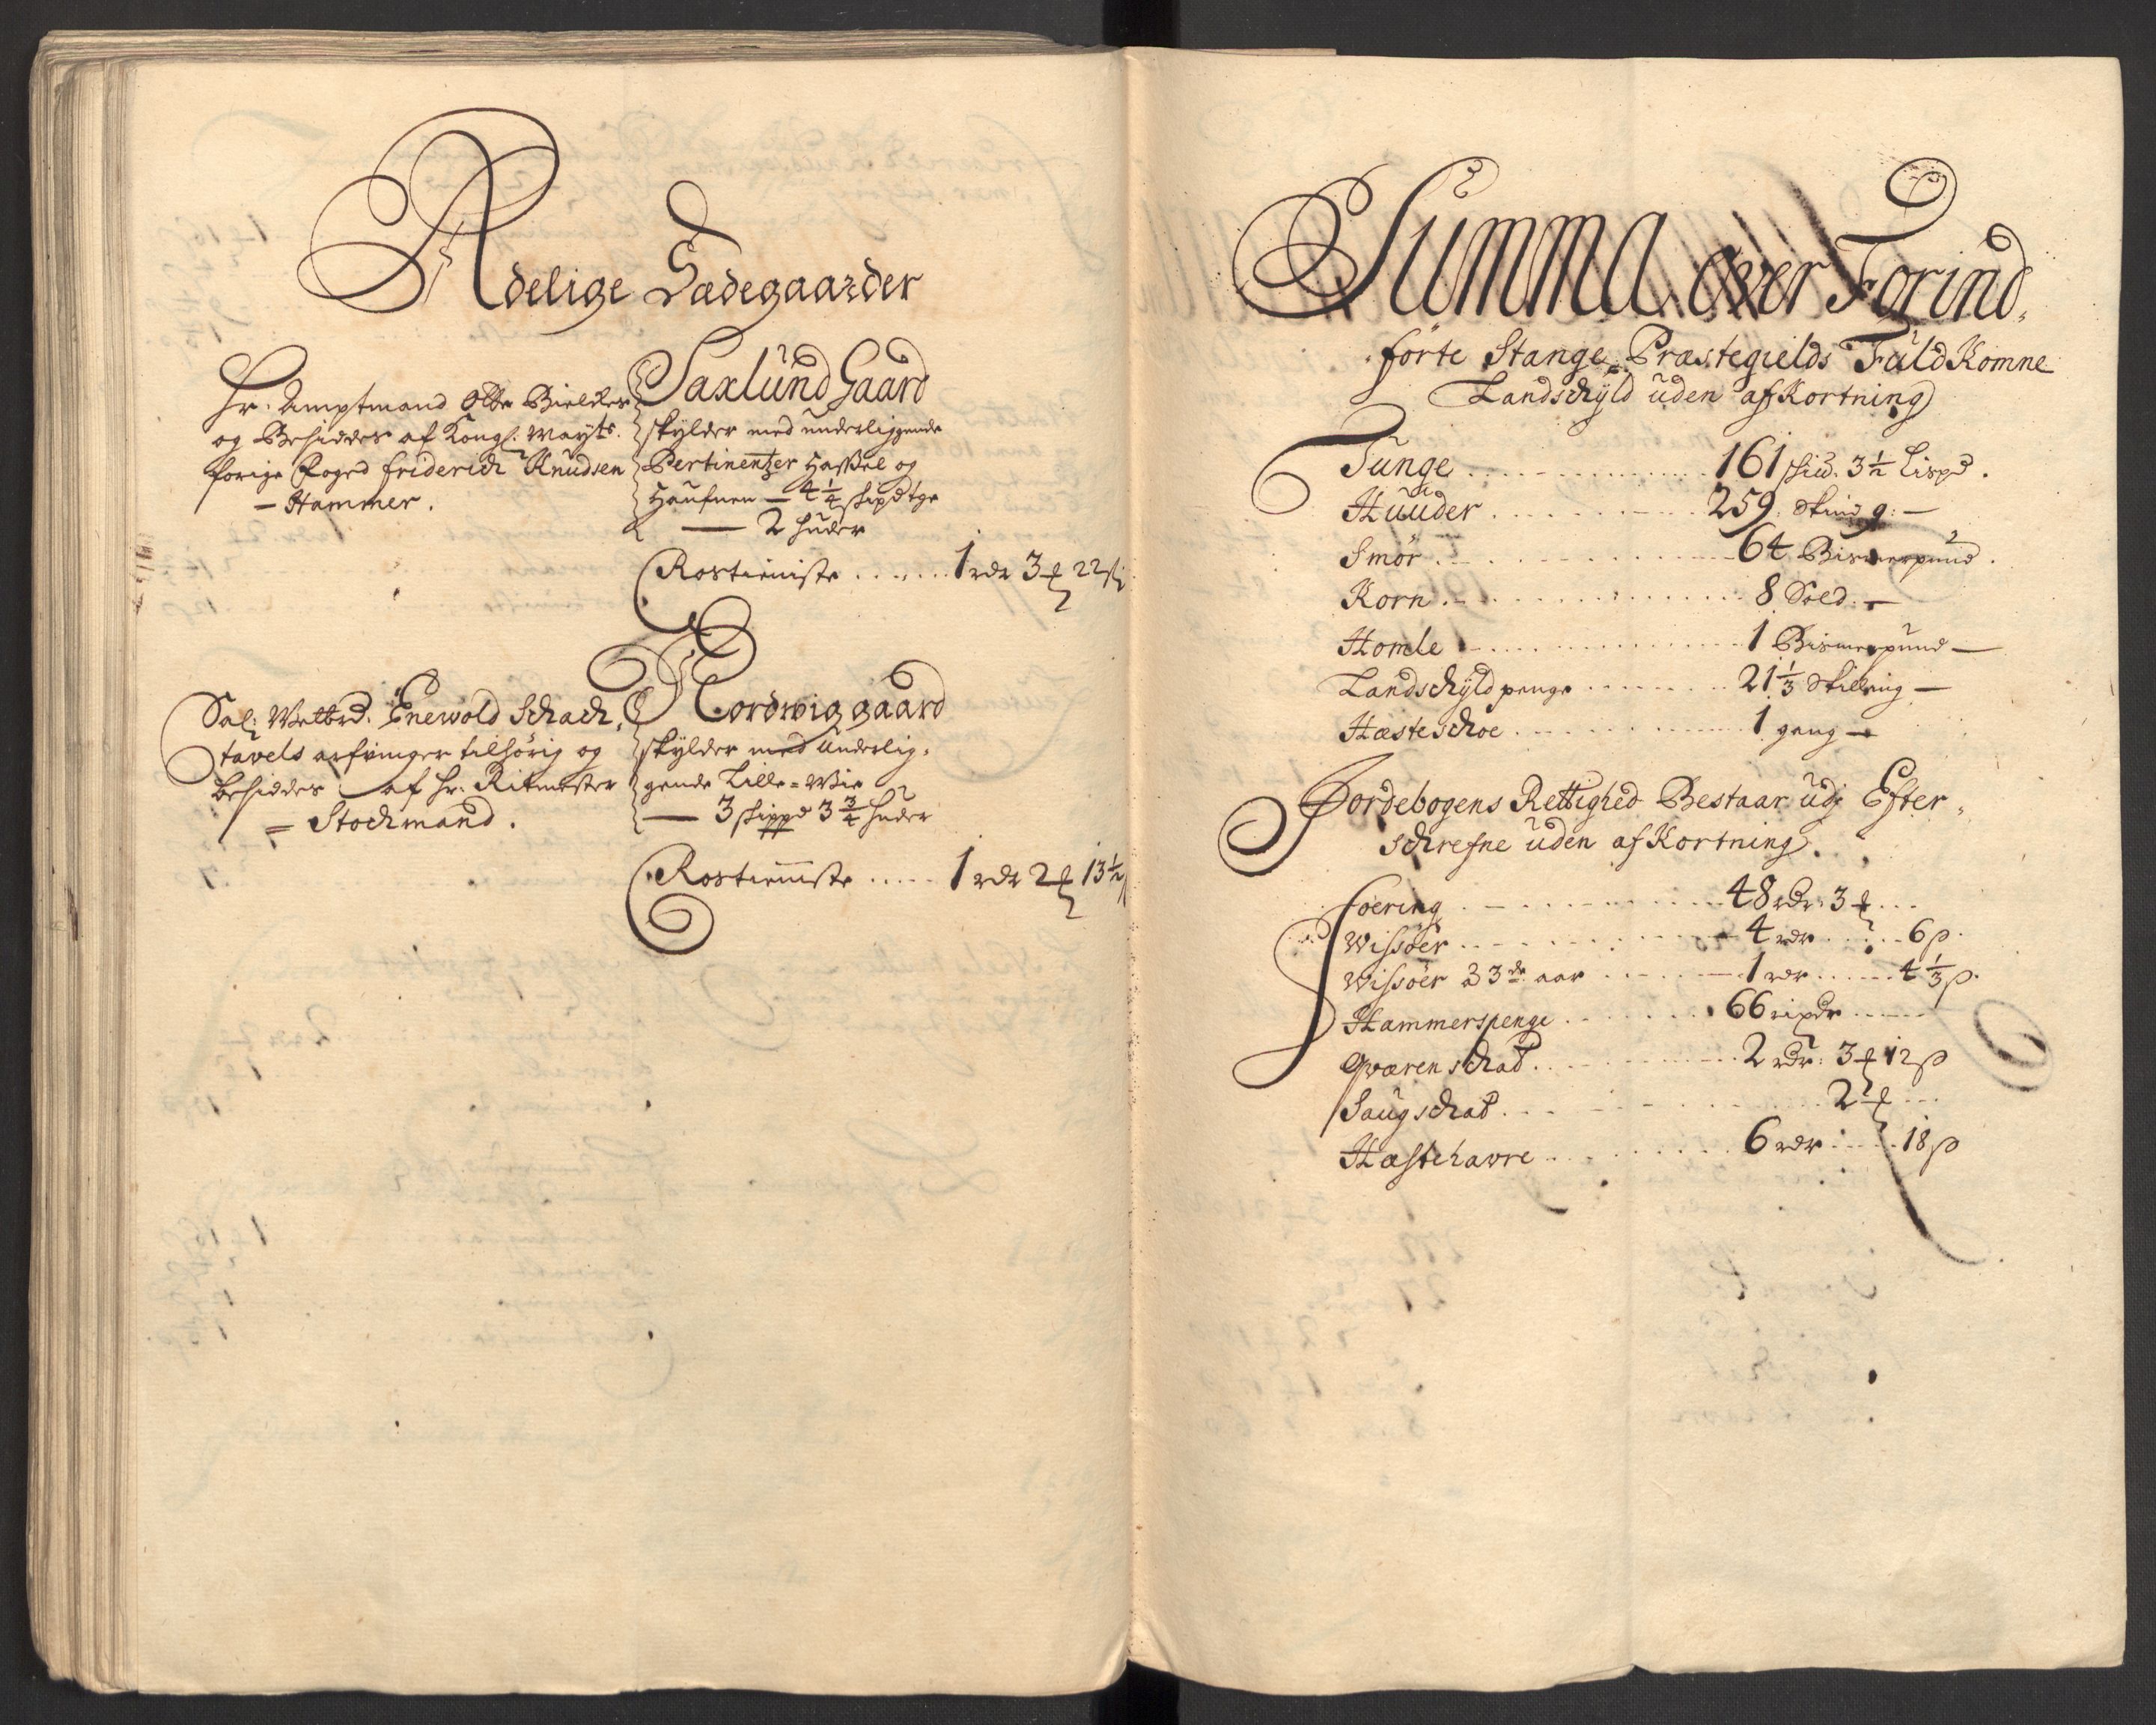 Adelige Sædegaarder
Hr. Amptmand Otte Bielkes
og Besiddes af Kongl: Mayts.
forige Foged Friderich Knudsen
– Hammer.
Saxlund Gaard
skylder med underliggende
Pertinentzer Hassel og
Haufnen – 4 1/4 skipd tge
— 2 huder
Rostieniste ....... 1 rdr 3 22
Sal: Welbrd. Enewold Schach
tavels arfvinger tilhörig og
besiddes af Hr. Ritmester
= Stochmand.
Nordwiggaard
skylder med Underlig,
gende Lille=Wie
— 3 skippd 3 3/4 huder
Rostieniste ..... 1 rdr 2 13 1/2
Summa over Forind,
förte Stange Præstegields FuldKomne
Landschyld uden afKortning
Tunge ............. 161 skid. 3 1/2 Lispd.
Huuder ............ 259. Skind 9: –
Smör .............. 64 Bismerpund.
Korn .............. 8 Sold: –
Homle ............. 1 Bismerpund –
Landschyld penge ........ 21 1/3 Skilling –
Hæsteschoe ............ 1 gang –
Jordebogens Rettighed Bestaar udj Efter,
schrefne uden afKortning.
Foering ............ 48 rdr: 3 ...
Wissöer ............ 4 rdr ..... 6 β.
Wissöer à 3de aar ....... 1 rdr ..... 4 1/3 β.
Hammerspenge ....... 66 .....
Qværenschat ......... 2 rdr: 3 12 β
Saugschat ............ 2 ...
Hæstehavre ......... 6 rdr ..... 18 β